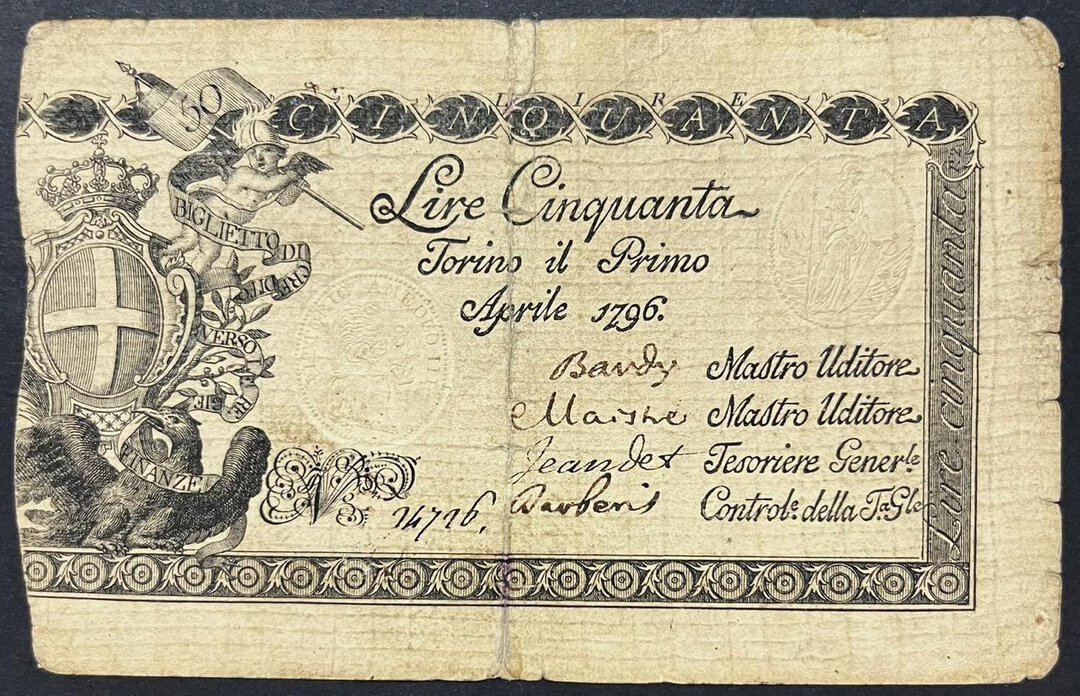 LIRE
CINQUANTA
50
BIGLIETTO DI CREDITO
VERSO
LE RE
FINANZE
Lire Cinquanta
Torino il Primo
Aprile 1796.
Mastro Uditore
Mastro Uditore
Jeandet Tesoriere Generle.
Barberis Controle. della Ta. Gle.
No
Lire cinquanta